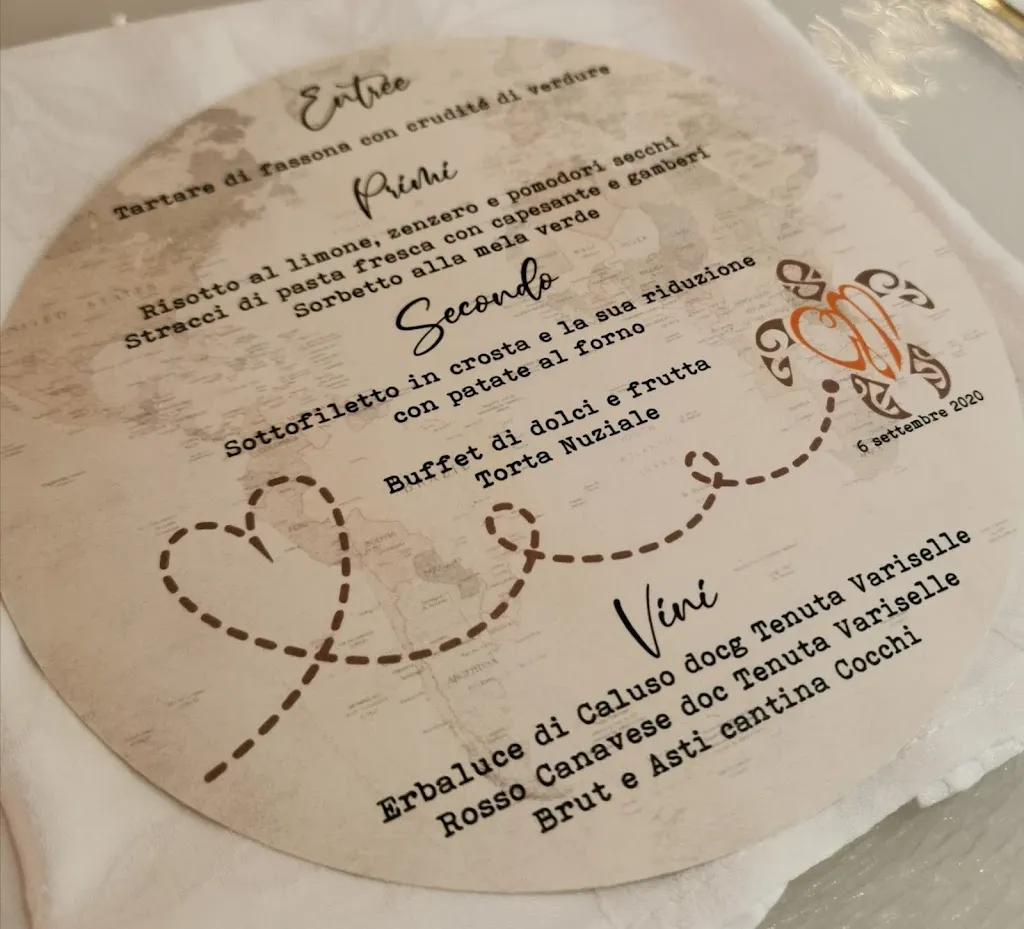 Entrée
Tartare di fassona con crudité di verdure
Primi
Risotto al limone, zenzero e pomodori secchi
Stracci di pasta fresca con capesante e gamberi
Sorbetto alla mela verde
Secondo
Sottofiletto in crosta e la sua riduzione
con patate al forno
Buffet di dolci e frutta
Torta Nuziale
6 settembre 2020
Vini
Erbaluce di Caluso docg Tenuta Variselle
Rosso Canavese doc Tenuta Variselle
Brut e Asti cantina Cocchi